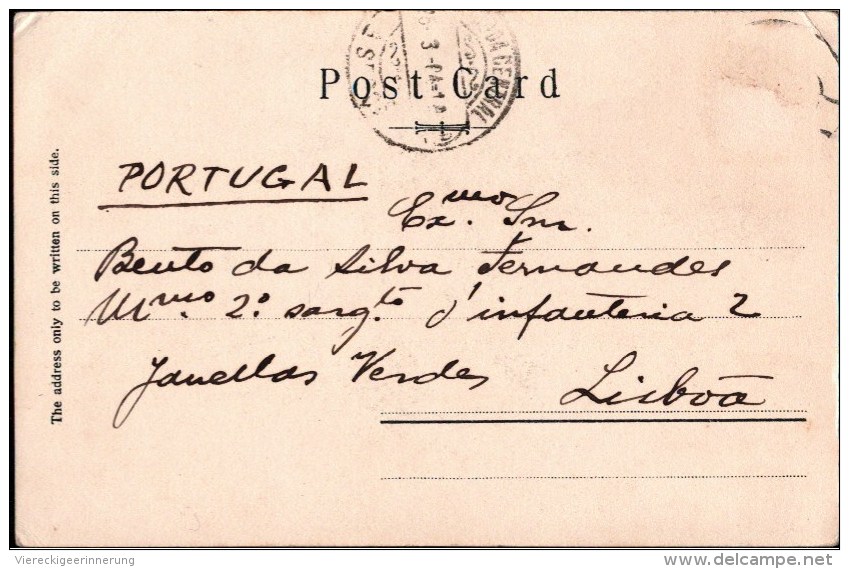 Post Card
PORTUGAL
Exmo. Snr.
Bento da Silva Fernandes
Mmo. 2.º sargto d'infanteria 2
Janellas Verdes
Lisbôa
The address only to be written on this side.
Viereckigeerinnerung
www.delcampe.net